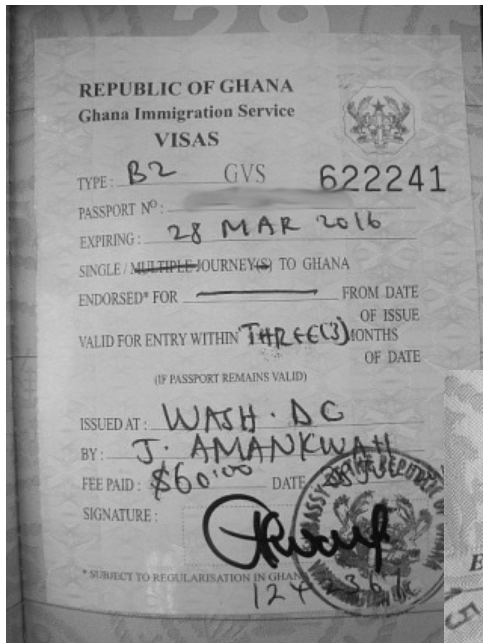 REPUBLIC OF GHANA
Ghana Immigration Service
VISAS
TYPE: B2 GVS 622241
PASSPORT Nº:
EXPIRING: 28 MAR 2016
SINGLE / MULTIPLE JOURNEY(S) TO GHANA
ENDORSED* FOR FROM DATE
OF ISSUE
VALID FOR ENTRY WITHIN THREE(3) MONTHS
OF DATE
(IF PASSPORT REMAINS VALID)
ISSUED AT: WASH. DC
BY: J. AMANKWAH
FEE PAID: $60.00 DATE
SIGNATURE:
EMBASSY OF THE REPUBLIC OF GHANA
WASHINGTON D.C.
* SUBJECT TO REGULARISATION IN GHANA